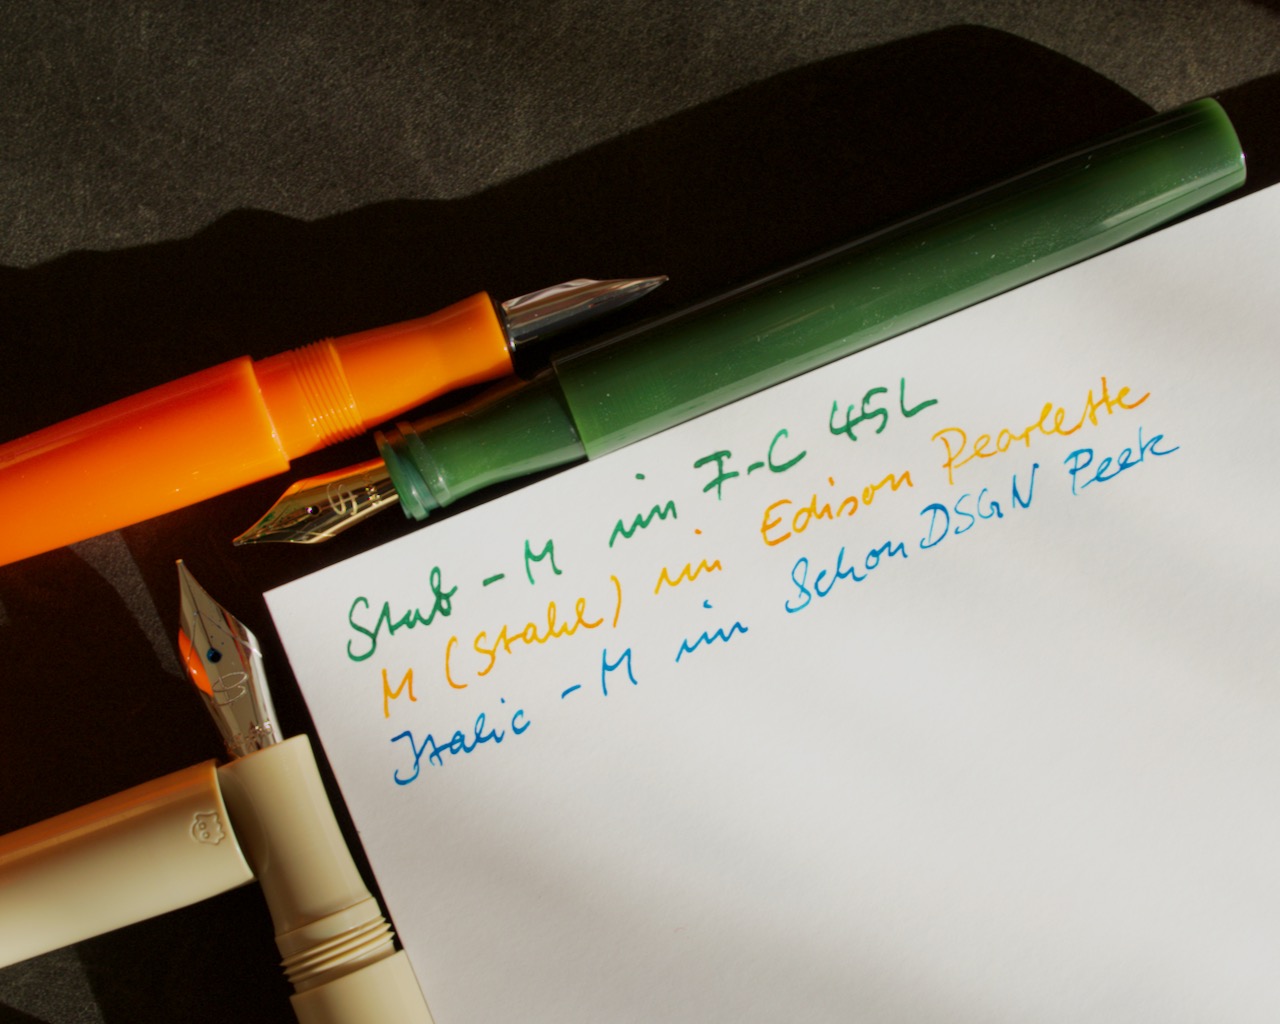 Stub - M in F-C 45L
M (Stahl) in Edison Pearlette
Italic - M in Schon DSGN Peek